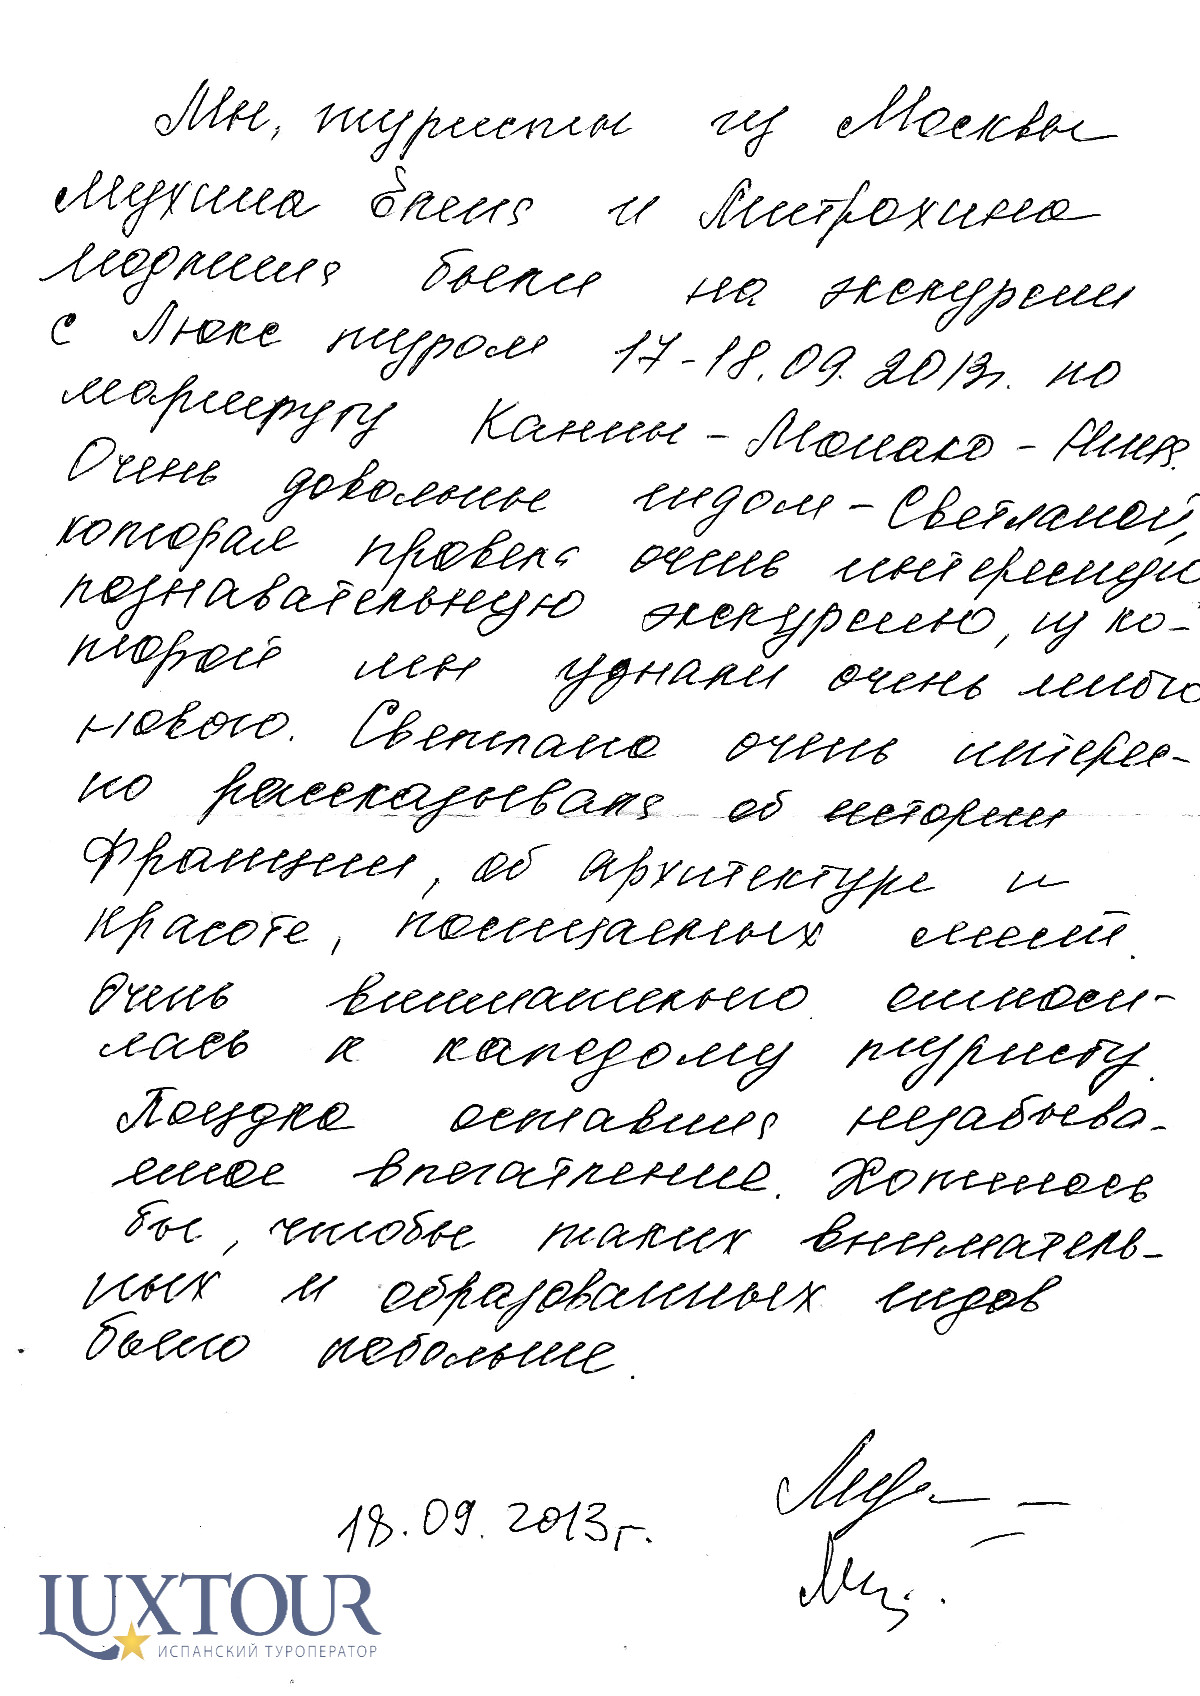 Мы, туристы из Москвы
Мухина Елена и Митрохина
Людмила были на экскурсии
с Люкс туром 17-18.09.2013г. по
маршруту Канны - Монако - Ницца.
Очень довольны гидом - Светланой,
которая провела очень интересную
познавательную экскурсию, из ко-
торой мы узнали очень много
нового. Светлана очень интерес-
но рассказывала об истории
Франции, об архитектуре и
красоте, посещаемых мест.
Очень внимательно относи-
лась к каждому туристу.
Поездка оставила незабыва-
емое впечатление. Хотелось
бы, чтобы таких вниматель-
ных и образованных гидов
было побольше.
18.09.2013г.
LUXTOUR
ИСПАНСКИЙ ТУРОПЕРАТОР